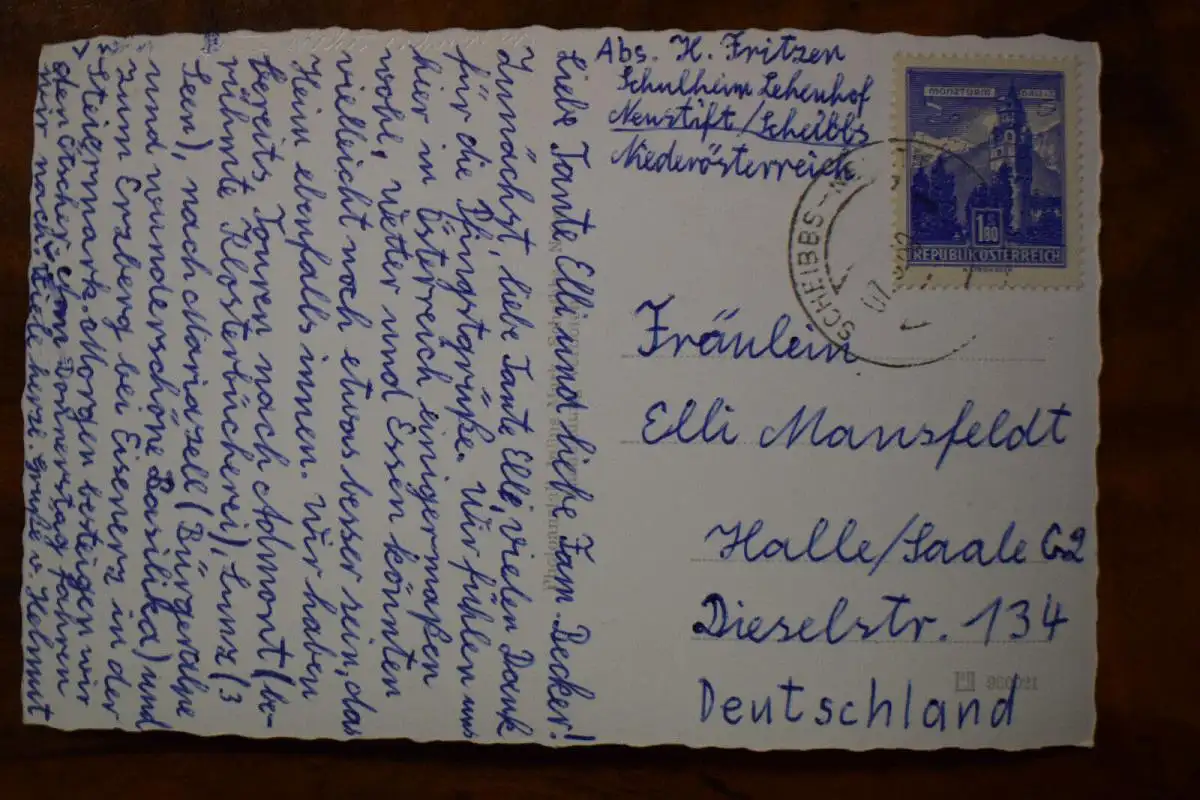 Abs. H. Fritzen
Schulheim Lehenhof
Neustift/Scheibbs
Niederösterreich
MÜNZTURM HALL
1.80
REPUBLIK ÖSTERREICH
SCHEIBBS
Fräulein
Elli Mansfeldt
Halle/Saale C2
Dieselstr. 134
Deutschland
Liebe Tante Elli und liebe Fam. Becker!
Zunächst, liebe Tante Elli, vielen Dank
für die Pfingstgrüße. Wir fühlen uns
hier in Österreich einigermaßen
wohl, Wetter und Essen könnten
vielleicht noch etwas besser sein, das
Heim ebenfalls innen. Wir haben
bereits Touren nach Admont (be-
rühmte Klosterbücherei), Lunz (3
Seen), nach Mariazell (Bürgeralpe
und wunderschöne Basilika) und
zum Erzberg bei Eisenerz in der
Steiermark. Morgen besteigen wir
den Ötscher, am Donnerstag fahren
wir nach herzl. Grüße v. Helmut